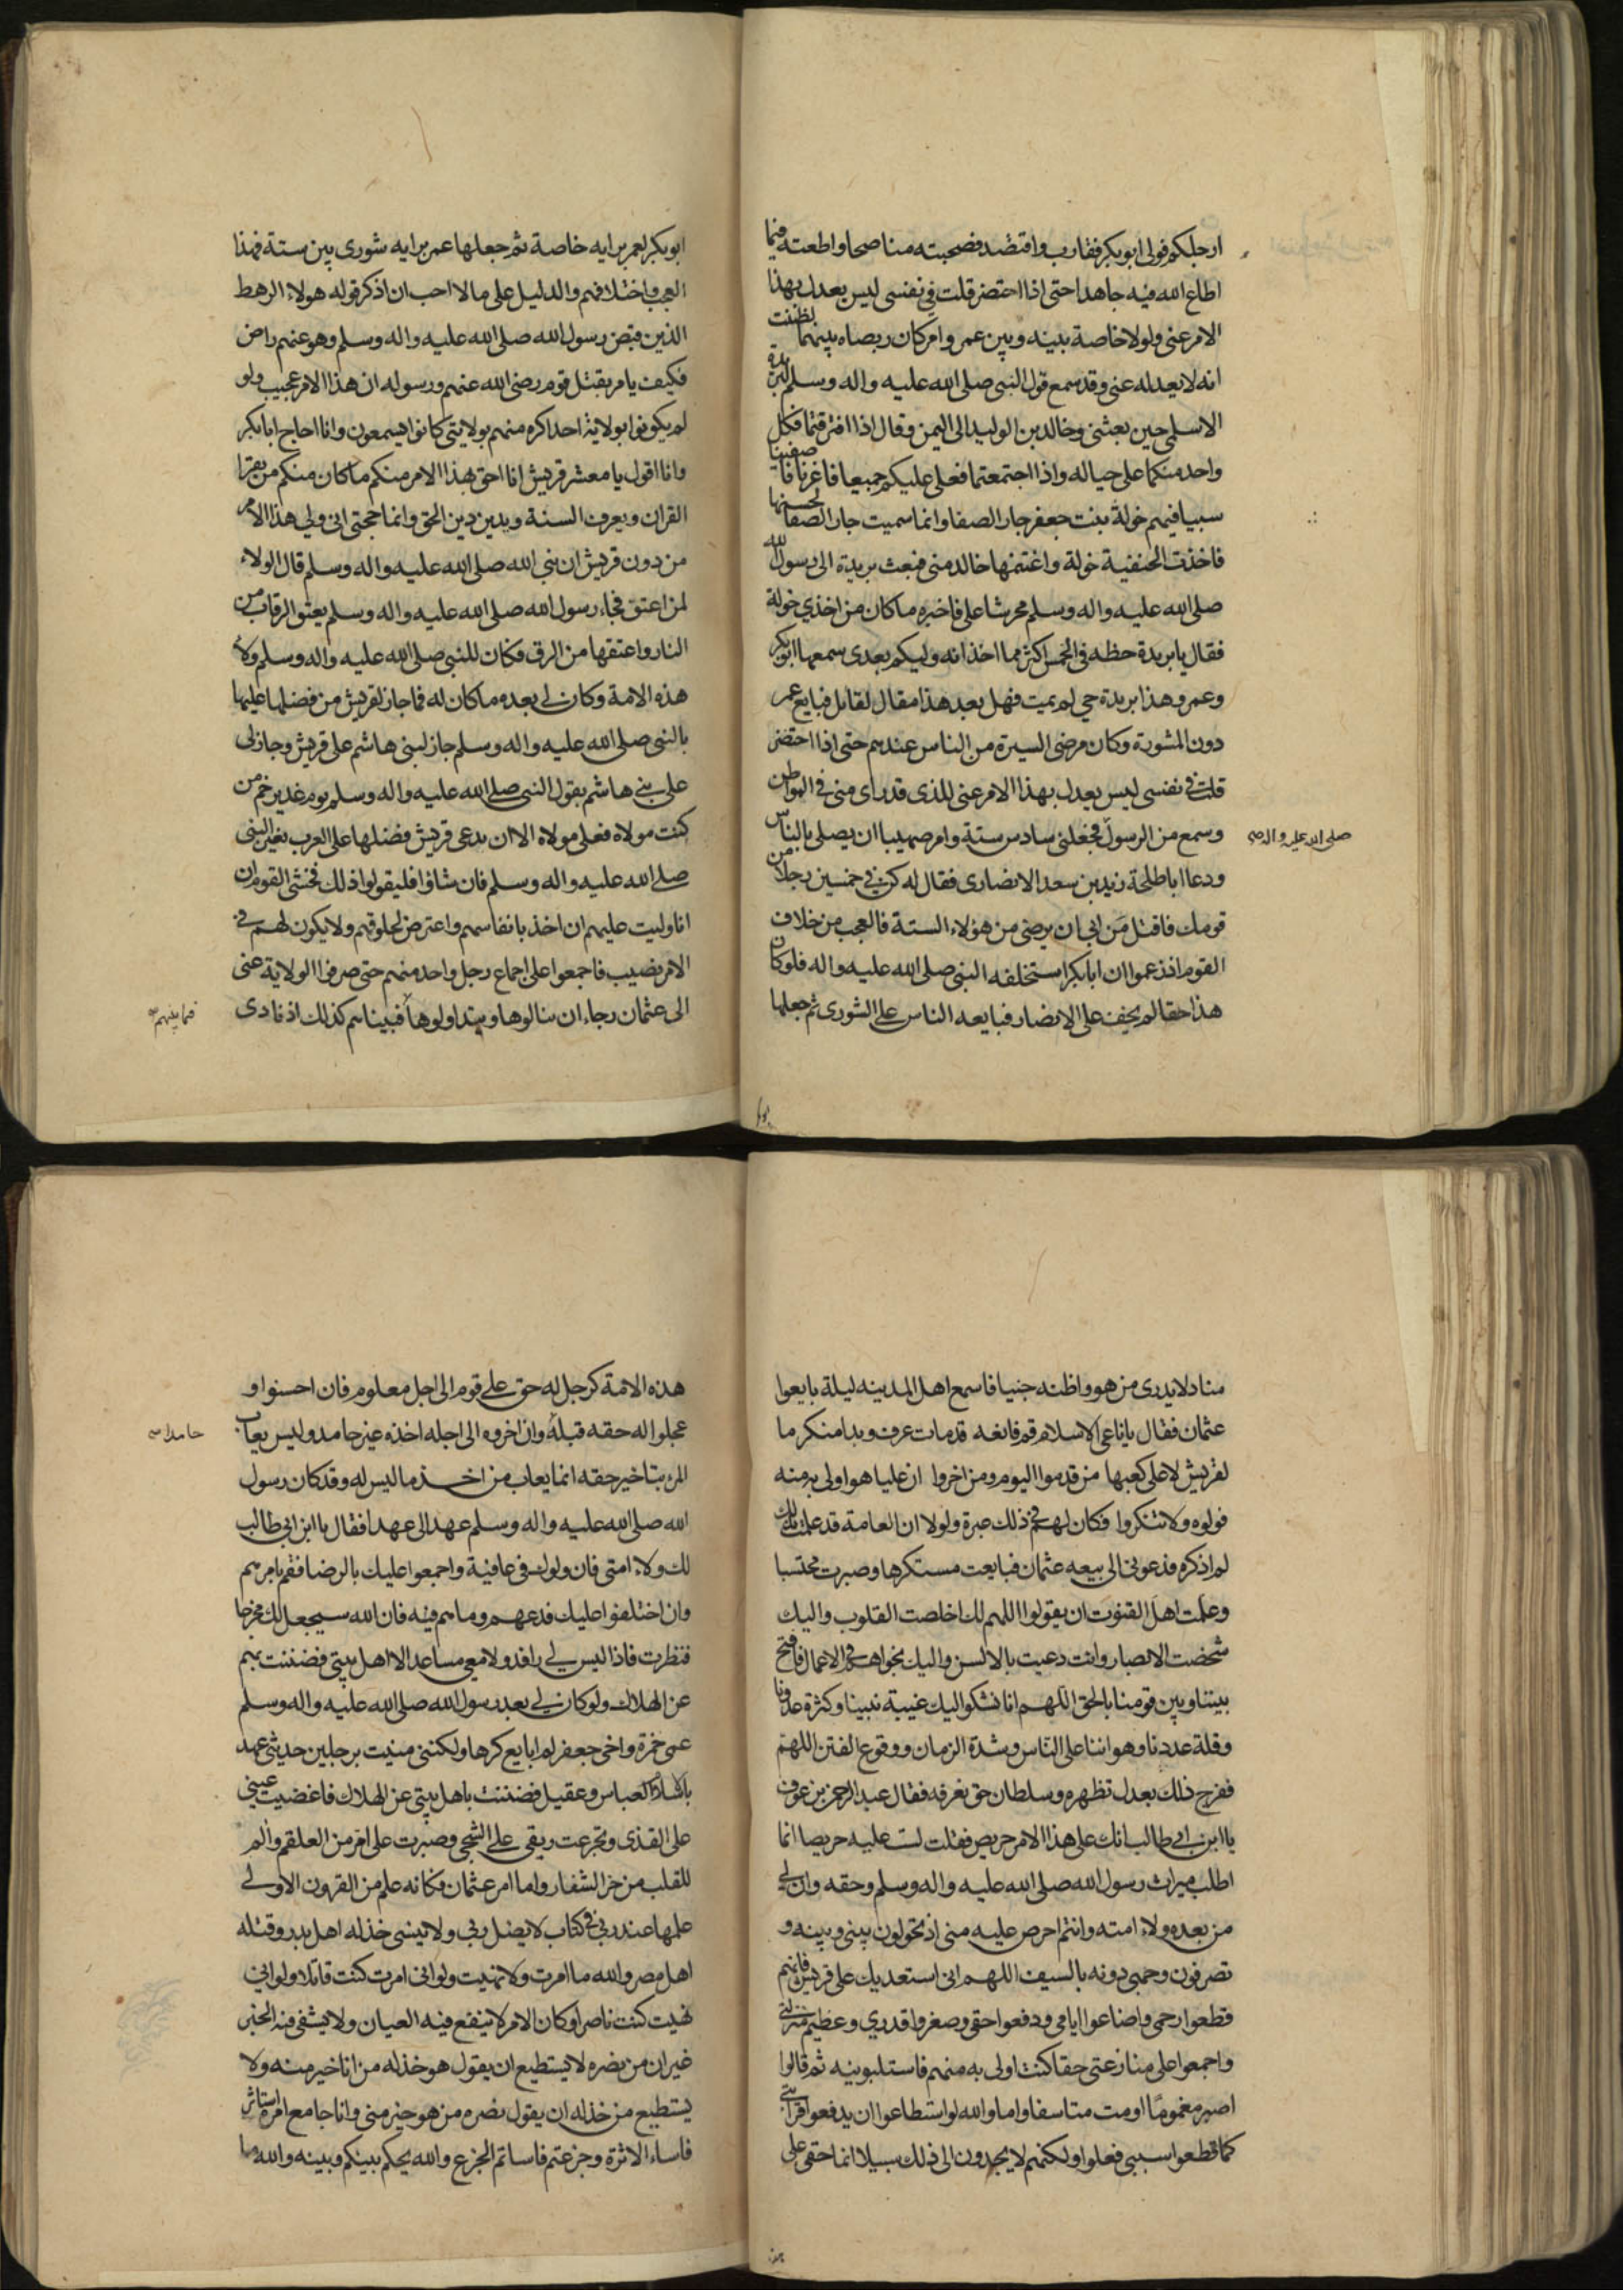 ارجلكم فولى ابو بكر فقارب واقتصد فصحبته مناصحا واطعته فيما
اطاع الله فيه جاهدا حتى اذا احتضر قلت في نفسي ليس يعدل بهذا
الامر عني ولولا خاصة بينه وبين عمر وامر كان ربصاه بينهما لظننت
انه لا يعدله عني وقد سمع قول النبي صلى الله عليه واله وسلم لبريدة
الاسلمي حين بعثني وخالد بن الوليد الى اليمن وقال اذا افترقتما فكل
واحد منكما على حياله واذا اجتمعتما فعلي عليكم جميعا فاغرنا فاصفينا
سبيا فيهم خولة بنت جعفر جار الصفا وانما سميت جار الصفا لحسنها
فاخذت الحنفية خولة واغتنمها خالد مني فبعث بريدة الى رسول الله
صلى الله عليه واله وسلم محرشا علي فاخبره ماكان من اخذي خولة
فقال يا بريدة حظه في الخمس اكثر مما اخذ انه وليكم بعدي سمعها ابو بكر
وعمر وهذا بريدة حي لم يمت فهل بعد هذا مقال لقائل فبايع عمر
دون المشورة وكان مرضي السيرة من الناس عندهم حتى اذا احتضر
قلت في نفسي ليس يعدل بهذا الامر عني للذي قد راى مني في المواطن
وسمع من الرسول فجعلني سادس ستة وامر صهيبا ان يصلي بالناس
صلى الله عليه واله
ودعا ابا طلحة زيد بن سعد الانصاري فقال له كن في خمسين رجلا من
قومك فاقتل من ابى ان يرضى من هؤلاء الستة فالعجب من خلاف
القوم اذ زعموا ان ابا بكر استخلفه النبي صلى الله عليه واله فلو كان
هذا حقا لم يخف على الانصار فبايعه الناس على الشورى ثم جعلها
ابو بكر لعمر برايه خاصة ثم جعلها عمر برايه شورى بين ستة فهذا
العجب واختلافهم والدليل على ما لا احب ان اذكر قوله هولاء الرهط
الذين قبض رسول الله صلى الله عليه واله وسلم وهو عنهم راض
فكيف يامر بقتل قوم رضي الله عنهم ورسوله ان هذا الامر عجيب ولو
لم يكونوا بولاية احد اكره منهم بولايتي كانوا يسمعون وانا احاج ابا بكر
وانا اقول يا معشر قريش انا احق بهذا الامر منكم ما كان منكم من يقرا
القران ويعرف السنة ويدين دين الحق وانما حجتي اني ولي هذا الامر
من دون قريش ان نبي الله صلى الله عليه واله وسلم قال الولاء
لمن اعتق فجاء رسول الله صلى الله عليه واله وسلم يعتق الرقاب من
النار واعتقها من الرق فكان للنبي صلى الله عليه واله وسلم ولاء
هذه الامة وكان لي بعده ما كان له فما جاز لقريش من فضلها عليها
بالنبي صلى الله عليه واله وسلم جاز لبني هاشم على قريش وجاز لي
على بني هاشم بقول النبي صلى الله عليه واله وسلم يوم غدير خم من
كنت مولاه فعلي مولاه الا ان يدعي قريش فضلها على العرب بغير النبي
صلى الله عليه واله وسلم فان شاؤا فليقولوا ذلك فخشي القوم ان
انا وليت عليهم ان اخذ بانفاسهم واعترض لحلوقهم ولا يكون لهم في
الامر نصيب فاجمعوا على اجماع رجل واحد منهم حتى صرفوا الولاية عني
الى عثمان رجاء ان ينالوها ويتداولوها فبيناهم كذلك اذ نادى
فيما بينهم
مناد لا يدرى من هو واظنه جنيا فاسمع اهل المدينه ليلة بايعوا
عثمان فقال يا ناعي الاسلام قم فانعه قد مات عرف وبدا منكر ما
لقريش لا علي كعبها من قدموا اليوم ومن اخروا ان عليا هو اولى به منه
فولوه ولا تنكروا فكان لهم في ذلك عبرة ولولا ان العامة قد علمت بذلك
لم اذكره فدعوني الى بيعه عثمان فبايعت مستكرها وصبرت محتسبا
وعلمت اهل القنوت ان يقولوا اللهم لك اخلصت القلوب واليك
شخصت الابصار وانت دعيت بالالسن واليك نجواهم في الاعمال فافتح
بيننا وبين قومنا بالحق اللهم انا نشكوا اليك غيبة نبينا وكثرة عدونا
وقلة عددنا وهواننا على الناس وشدة الزمان ووقوع الفتن اللهم
ففرج ذلك بعدل تظهره وسلطان حق تعرفه فقال عبد الرحمن بن عوف
يا ابن ابي طالب انك على هذا الامر حريص فقلت لست عليه حريصا انما
اطلب ميراث رسول الله صلى الله عليه واله وسلم وحقه وان لي
من بعده ولاء امته وانتم احرص عليه مني اذ تحولون بيني وبينه و
تصرفون وجهي دونه بالسيف اللهم اني استعديك على قريش فانهم
قطعوا رحمي واضاعوا ايامي ودفعوا حقي وصغروا قدري وعظيم منزلتي
واجمعوا على منازعتي حقا كنت اولى به منهم فاستلبونيه ثم قالوا
اصبر مغموما او مت متاسفا واما والله لو استطاعوا ان يدفعوا قرابتي
كما قطعوا سببي فعلوا ولكنهم لا يجدون الى ذلك سبيلا انما حقي على
هذه الامة كرجل له حق على قوم الى اجل معلوم فان احسنوا و
عجلوا له حقه قبله وان اخروه الى اجله اخذه غير حامد وليس يعاب
حامدا
المرء بتاخير حقه انما يعاب من اخذ ما ليس له وقد كان رسول
الله صلى الله عليه واله وسلم عهد الي عهدا فقال يا ابن ابي طالب
لك ولاء امتي فان ولوك في عافية واجمعوا عليك بالرضا فقم بامرهم
وان اختلفوا عليك فدعهم وما هم فيه فان الله سيجعل لك مخرجا
فنظرت فاذا ليس لي رافد ولا معي مساعد الا اهل بيتي فضننت بهم
عن الهلاك ولو كان لي بعد رسول الله صلى الله عليه واله وسلم
عمي حمزة واخي جعفر لم ابايع كرها ولكنني منيت برجلين حديثي عهد
بالاسلام العباس وعقيل فضننت باهل بيتي عن الهلاك فاغضيت عيني
على القذى وتجرعت ريقي على الشجى وصبرت على امر من العلقم والم
للقلب من حز الشفار واما امر عثمان فكانه علم من القرون الاولى
علمها عند ربي في كتاب لا يضل ربي ولا ينسى خذله اهل بدر وقتله
اهل مصر والله ما امرت ولا نهيت ولو اني امرت كنت قاتلا ولو اني
نهيت كنت ناصرا وكان الامر لا ينفع فيه العيان ولا يشفى منه الخبر
غير ان من نصره لا يستطيع ان يقول هو خذله من انا خير منه ولا
يستطيع من خذله ان يقول نصره من هو خير مني وانا جامع امره استاثر
فاساء الاثرة وجزعتم فاساتم الجزع والله يحكم بينكم وبينه والله ما